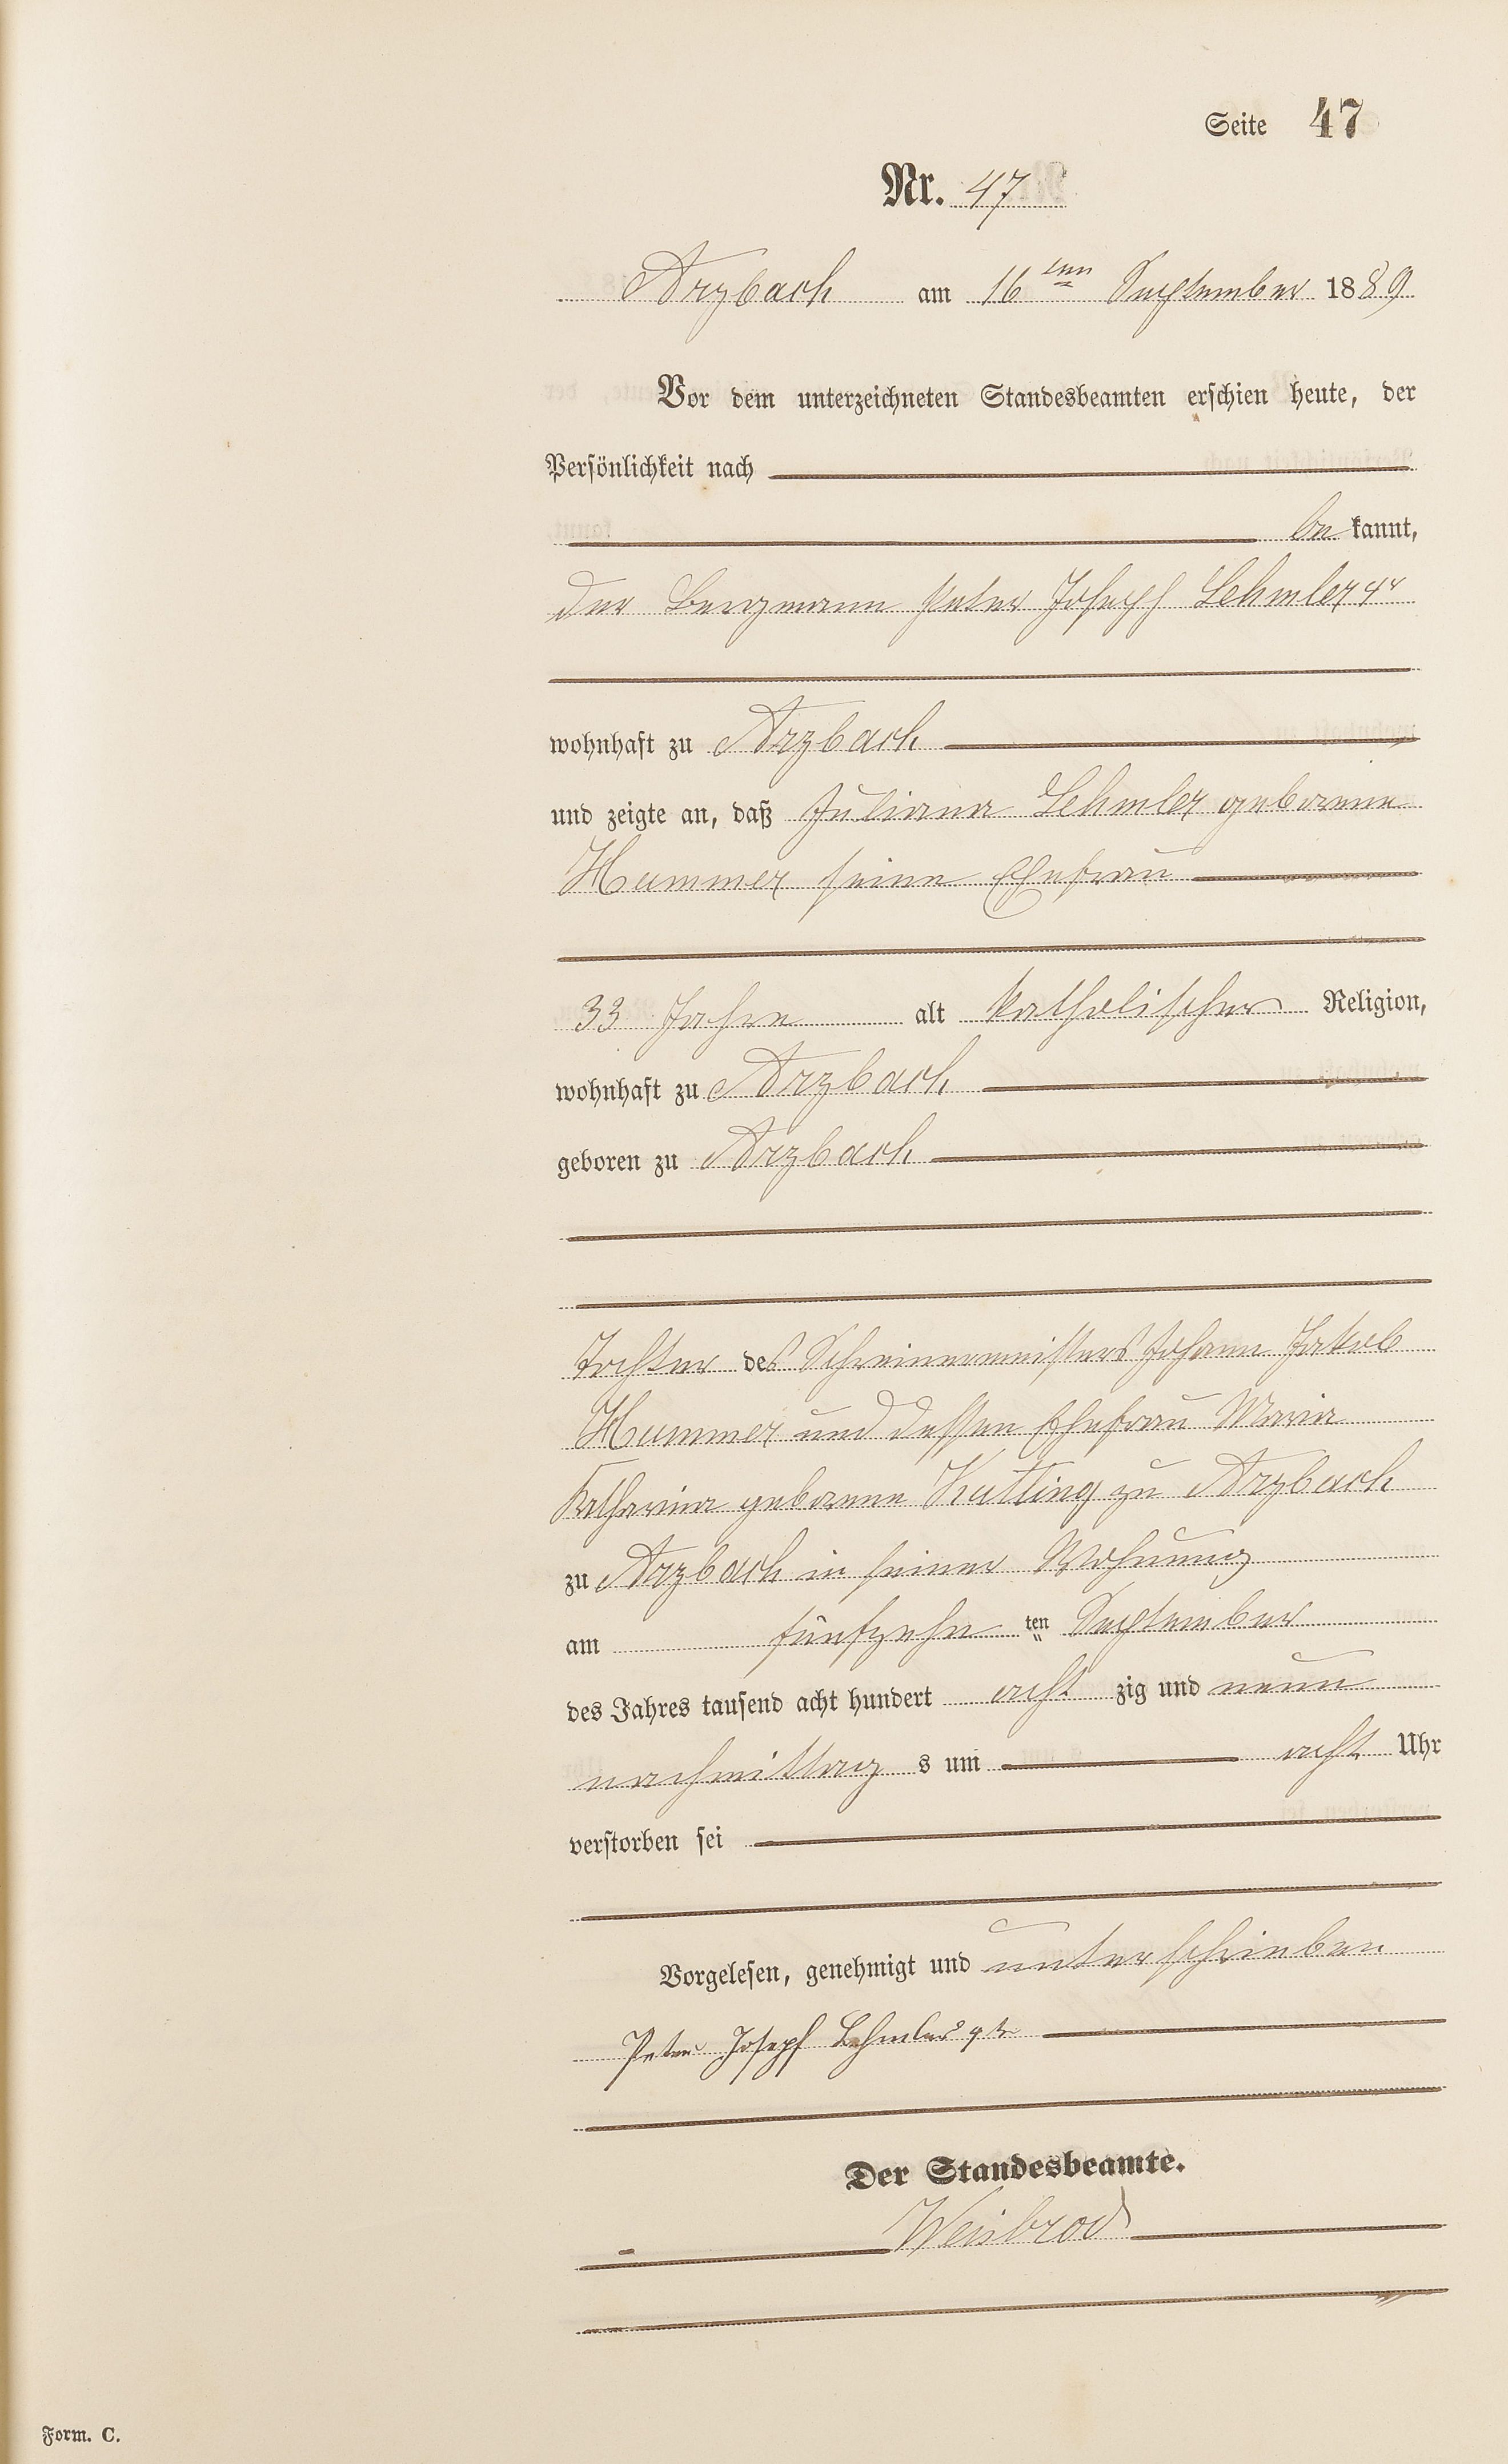 Seite 47
Nr. 47
Arzbach am 16ten September 1889
Vor dem unterzeichneten Standesbeamten erschien heute, der
Persönlichkeit nach
be kannt,
der Bergmann Peter Joseph Lehmler 4r
wohnhaft zu Arzbach
und zeigte an, daß Juliana Lehmler geborene
Hummer seine Ehefrau
33 Jahre alt katholischer Religion,
wohnhaft zu Arzbach
geboren zu Arzbach
Tochter des Schreinermeisters Johann Jakob
Hummer und dessen Ehefrau Maria
Katharina geborene Kutting zu Arzbach
zu Arzbach in seiner Wohnung
am fünfzehn ten September
des Jahres tausend acht hundert acht zig und neun
nachmittag s um acht Uhr
verstorben sei
Vorgelesen, genehmigt und unterschrieben
Peter Joseph Lehmler
Der Standesbeamte.
Weisbrod
Form. C.